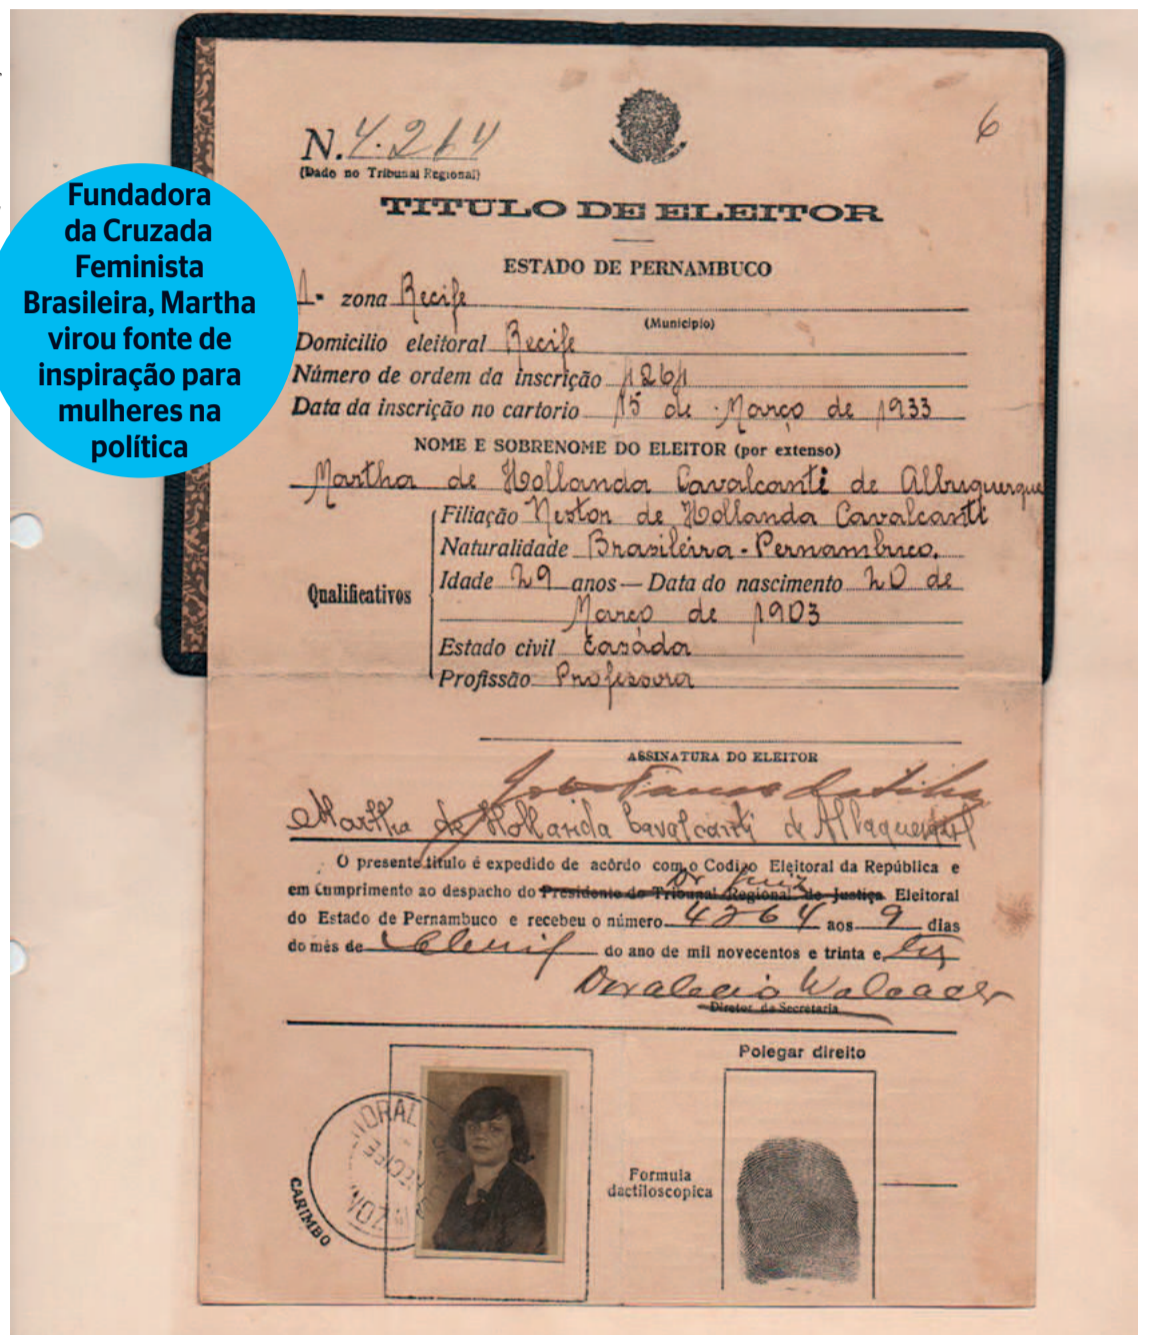 N. 4.264
(Dado no Tribunal Regional)
6
TITULO DE ELEITOR
ESTADO DE PERNAMBUCO
Fundadora
da Cruzada
Feminista
Brasileira, Martha
virou fonte de
inspiração para
mulheres na
política
1ª zona Recife
(Municipio)
Domicilio eleitoral Recife
Número de ordem da inscrição 1261
Data da inscrição no cartorio 15 de Março de 1933
NOME E SOBRENOME DO ELEITOR (por extenso)
Martha de Hollanda Cavalcanti de Albuquerque
Filiação Nestor de Hollanda Cavalcanti
Naturalidade Brasileira - Pernambuco.
Qualificativos
Idade 29 anos — Data do nascimento 20 de
Março de 1903
Estado civil Casáda
Profissão Professora
ASSINATURA DO ELEITOR
Martha de Hollanda Cavalcanti de Albuquerque
O presente titulo é expedido de acôrdo com o Codigo Eleitoral da República e
em cumprimento ao despacho do Presidente do Tribunal Regional de Justiça Eleitoral
Dr Juiz
do Estado de Pernambuco e recebeu o número 4264 aos 9 dias
do mês de do ano de mil novecentos e trinta e tres
Diretor da Secretaria
Polegar direito
CARIMBO
Formula
dactiloscopica